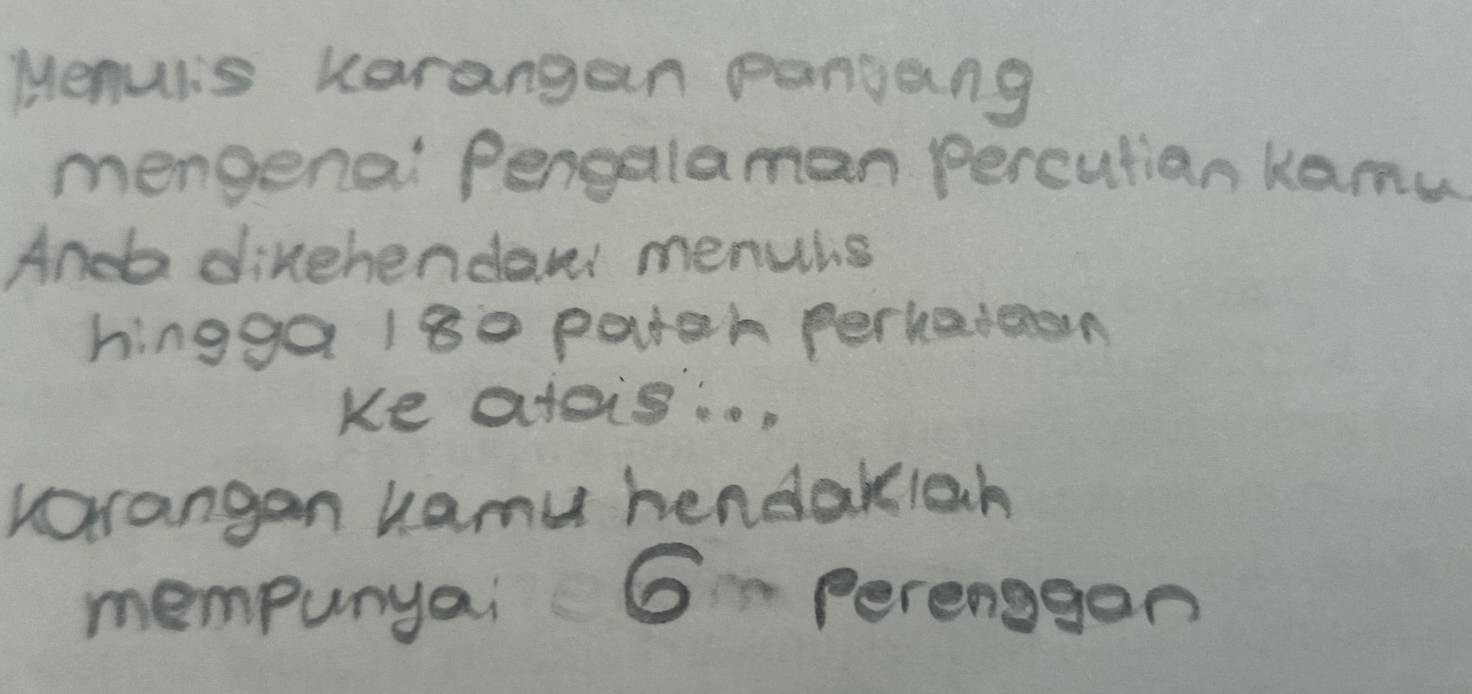 Menulis karangan panjang
mengenai Pengalaman Percutian kamu
Anda dikehendaki menulis
hingga 180 patah perkataan
ke atas...
karangan kamu hendaklah
mempunyai 6 Perenggan